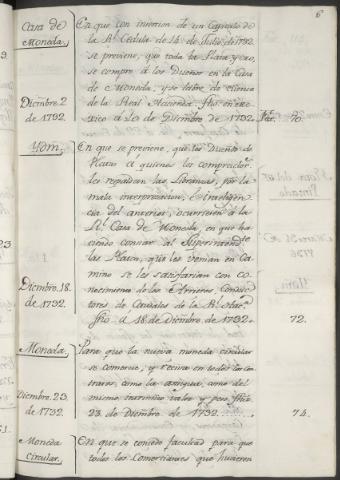 6
Casa de
Moneda.
En que con insercion de un Capitulo de
la Rl. Cedula de 14. de Julio, de 1792.
se previene, que toda la Plata y oro,
se compre à los Dueños en la Casa
de Moneda, y se libre de cuenta
de la Real Hacienda. fho en Me-
Diciembre 2
de 1792.
xico à 20 de Diciembre de 1792.
70.
Ydm.
En que se previene, que los Dueños de
Platas à quienes los compradores
les repassan las Libranzas, por la
mala interpretacion, è inteligen-
cia del anterior, ocurriesen à la
Rl. Casa de Moneda, en que ha-
ciendo constar al Superintendte
las Platas, que les venian en Ca-
mino se les satisfarian con co-
Diciembre. 18.
de 1792.
nocimiento de los Arrieros Conduc-
tores de Caudales de la Rl. Hacda.
fho à 18 de Diciembre de 1792.
72.
Moneda.
Para que la nueva moneda circular
se comercie, y reciva en todos los con-
tratos, como la antigua, como del
Diciembre. 23.
de 1792.
mismo intrinsico valor y peso fho
23. de Diciembre de 1792.
74.
Moneda
Circular.
En que se concede facultad para que
todos los Comerciantes que huvieren